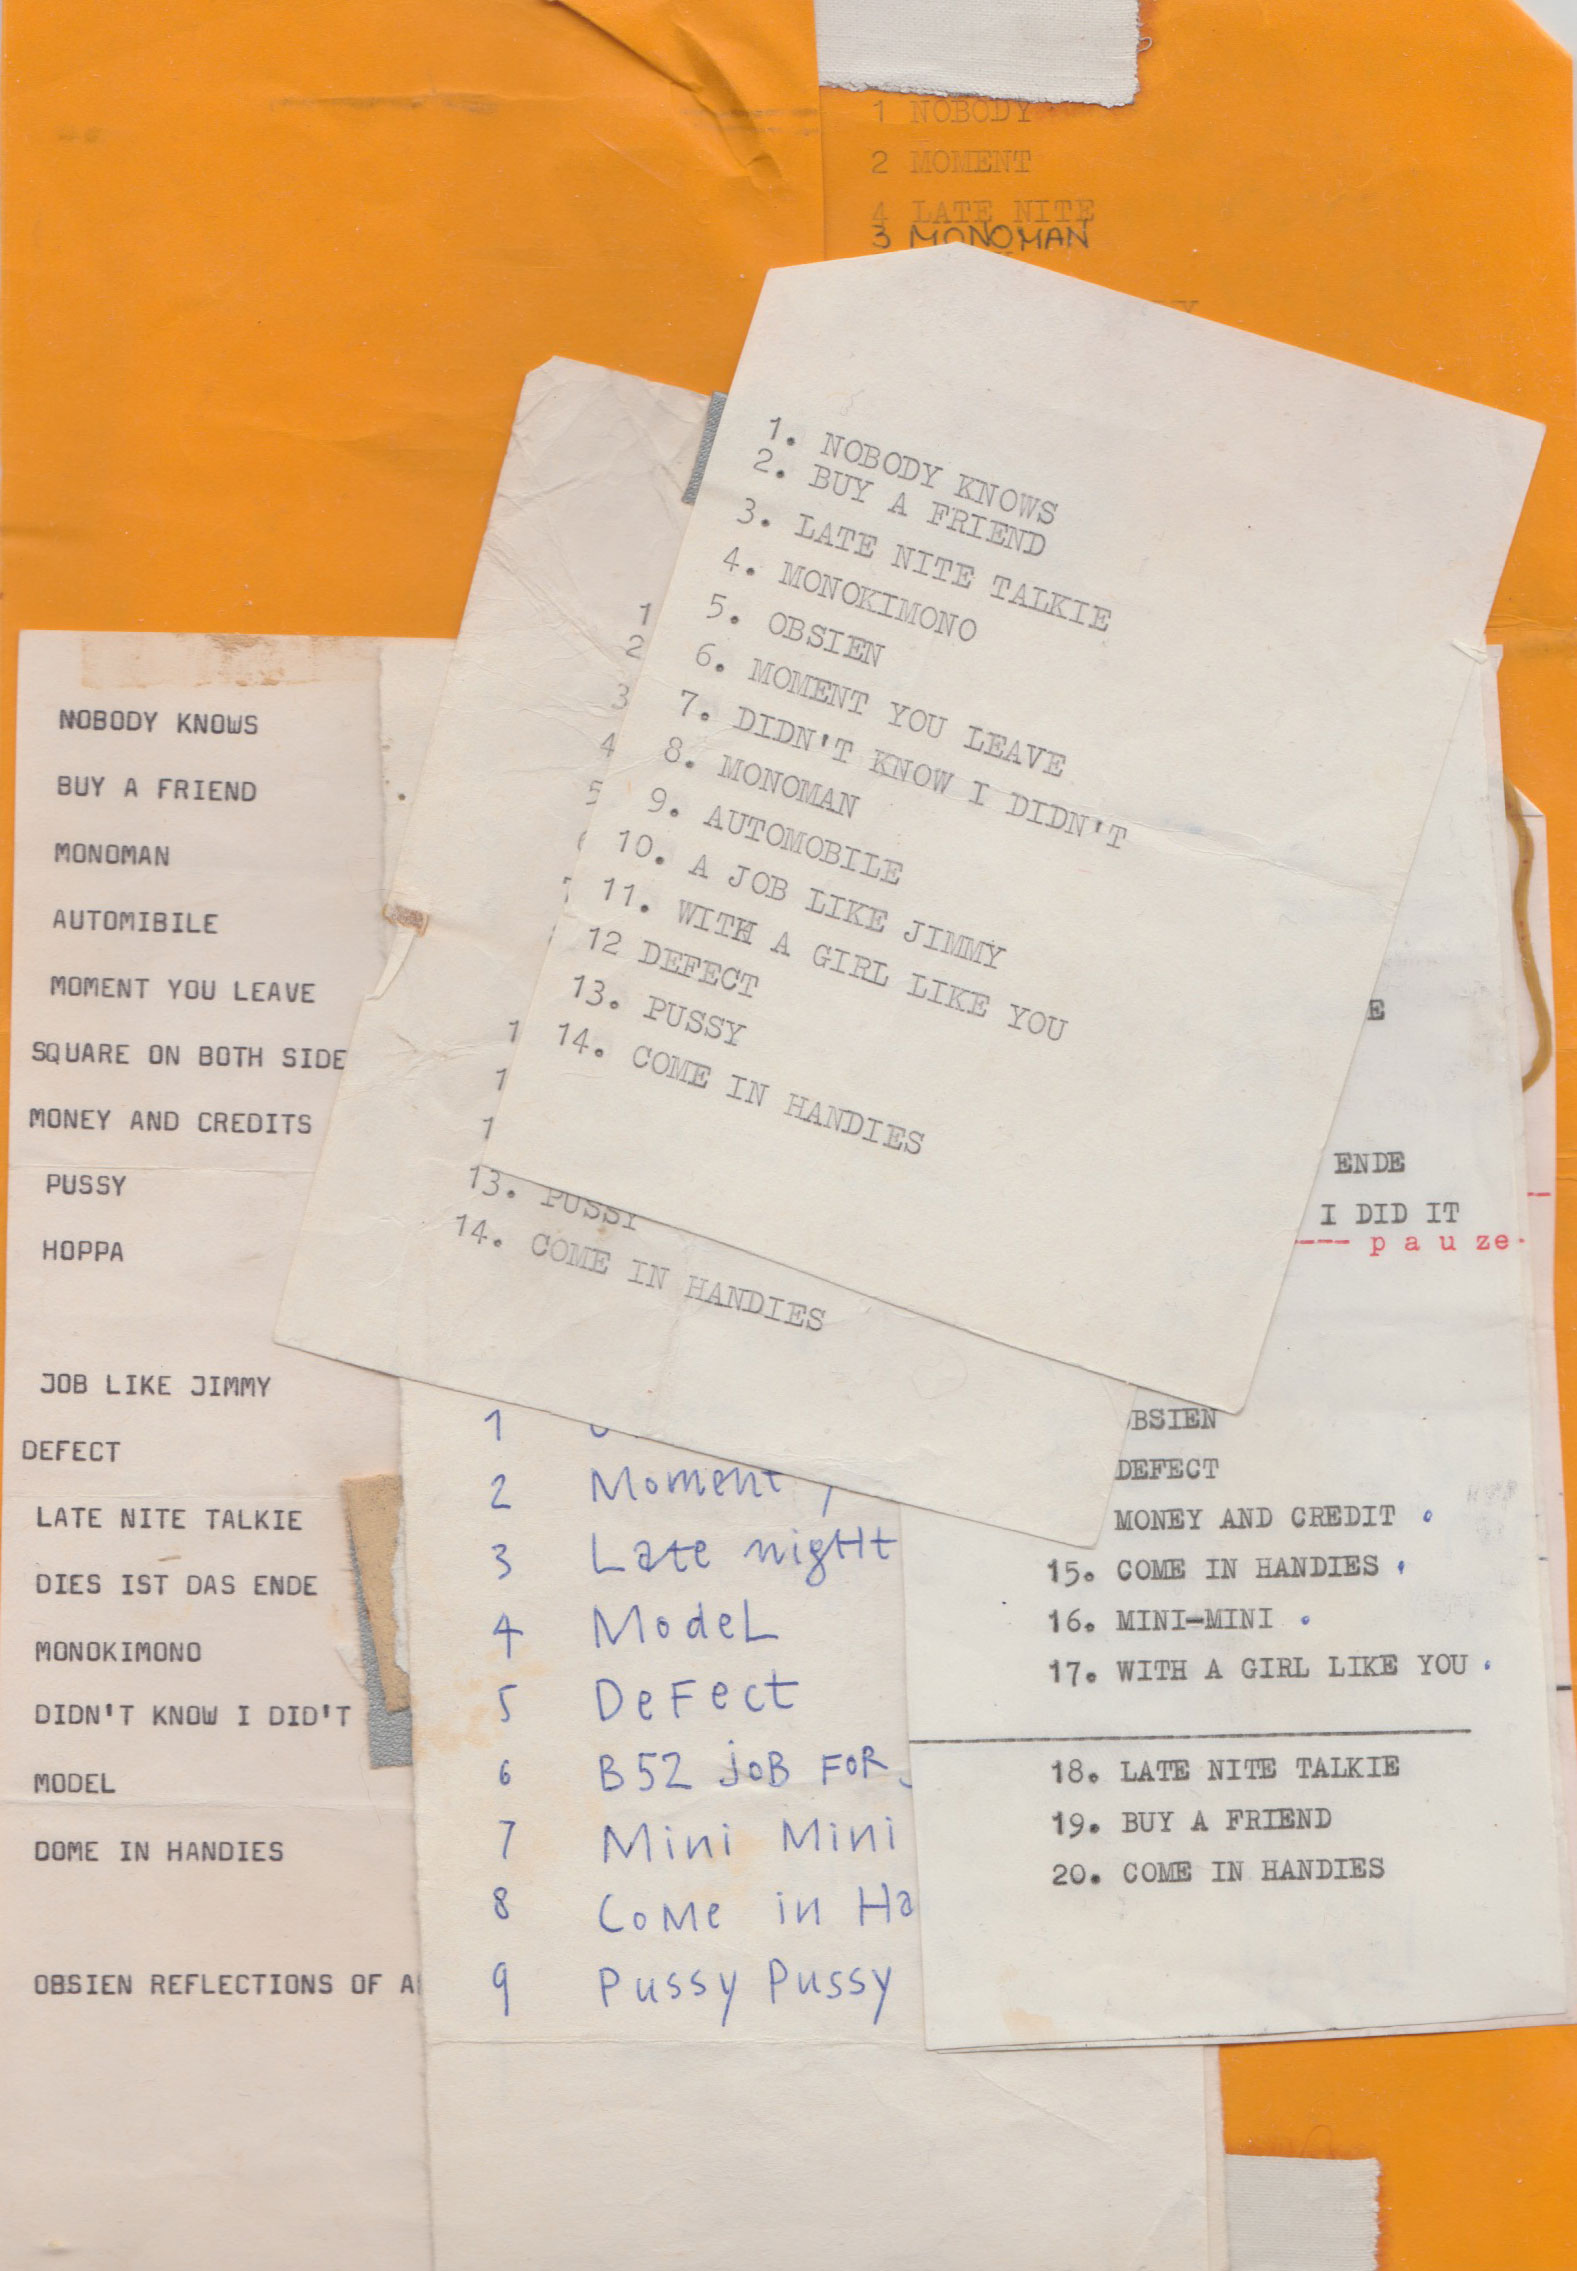 1 NOBODY
2 MOMENT
4 LATE NITE
3 MONOMAN
1. NOBODY KNOWS
2. BUY A FRIEND
3. LATE NITE TALKIE
4. MONOKIMONO
5. OBSIEN
6. MOMENT YOU LEAVE
7. DIDN'T KNOW I DIDN'T
8. MONOMAN
9. AUTOMOBILE
10. A JOB LIKE JIMMY
11. WITH A GIRL LIKE YOU
12 DEFECT
13. PUSSY
14. COME IN HANDIES
1
2
3
4
5
1
1
1
13. PUSSY
14. COME IN HANDIES
NOBODY KNOWS
BUY A FRIEND
MONOMAN
AUTOMIBILE
MOMENT YOU LEAVE
SQUARE ON BOTH SIDE
MONEY AND CREDITS
PUSSY
HOPPA
JOB LIKE JIMMY
DEFECT
LATE NITE TALKIE
DIES IST DAS ENDE
MONOKIMONO
DIDN'T KNOW I DID'T
MODEL
DOME IN HANDIES
OBSIEN REFLECTIONS OF A
1
2 Moment
3 Late nigHt
4 ModeL
5 DeFect
6 B52 joB FOR
7 Mini Mini
8 CoMe in Ha
9 Pussy Pussy
E
ENDE
I DID IT
---- p a u ze
BSIEN
DEFECT
MONEY AND CREDIT
15. COME IN HANDIES
16. MINI-MINI
17. WITH A GIRL LIKE YOU
18. LATE NITE TALKIE
19. BUY A FRIEND
20. COME IN HANDIES